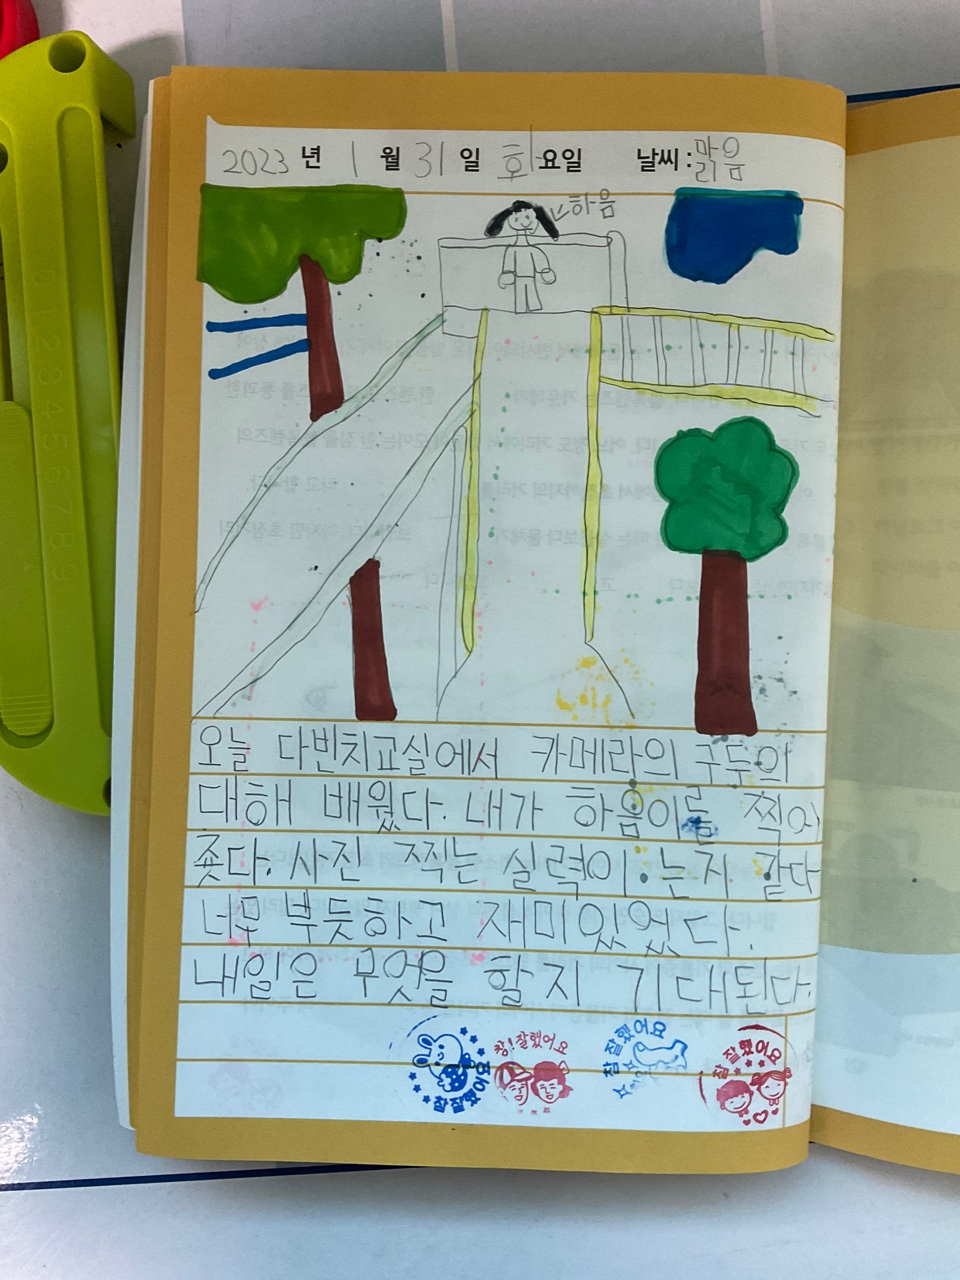 2023 년 1 월 31 일 화요일 날씨: 맑음
하음
오늘 다빈치교실에서 카메라의 구두의
대해 배웠다. 내가 하음이를 찍어
줬다. 사진 찍는 실력이 는지 같다
너무 뿌듯하고 재미있었다.
내일은 무엇을 할지 기대된다.
참 잘했어요
참! 잘했어요
참 잘했어요
참 잘했어요
0 1 2 3 4 5 6 7 8 9